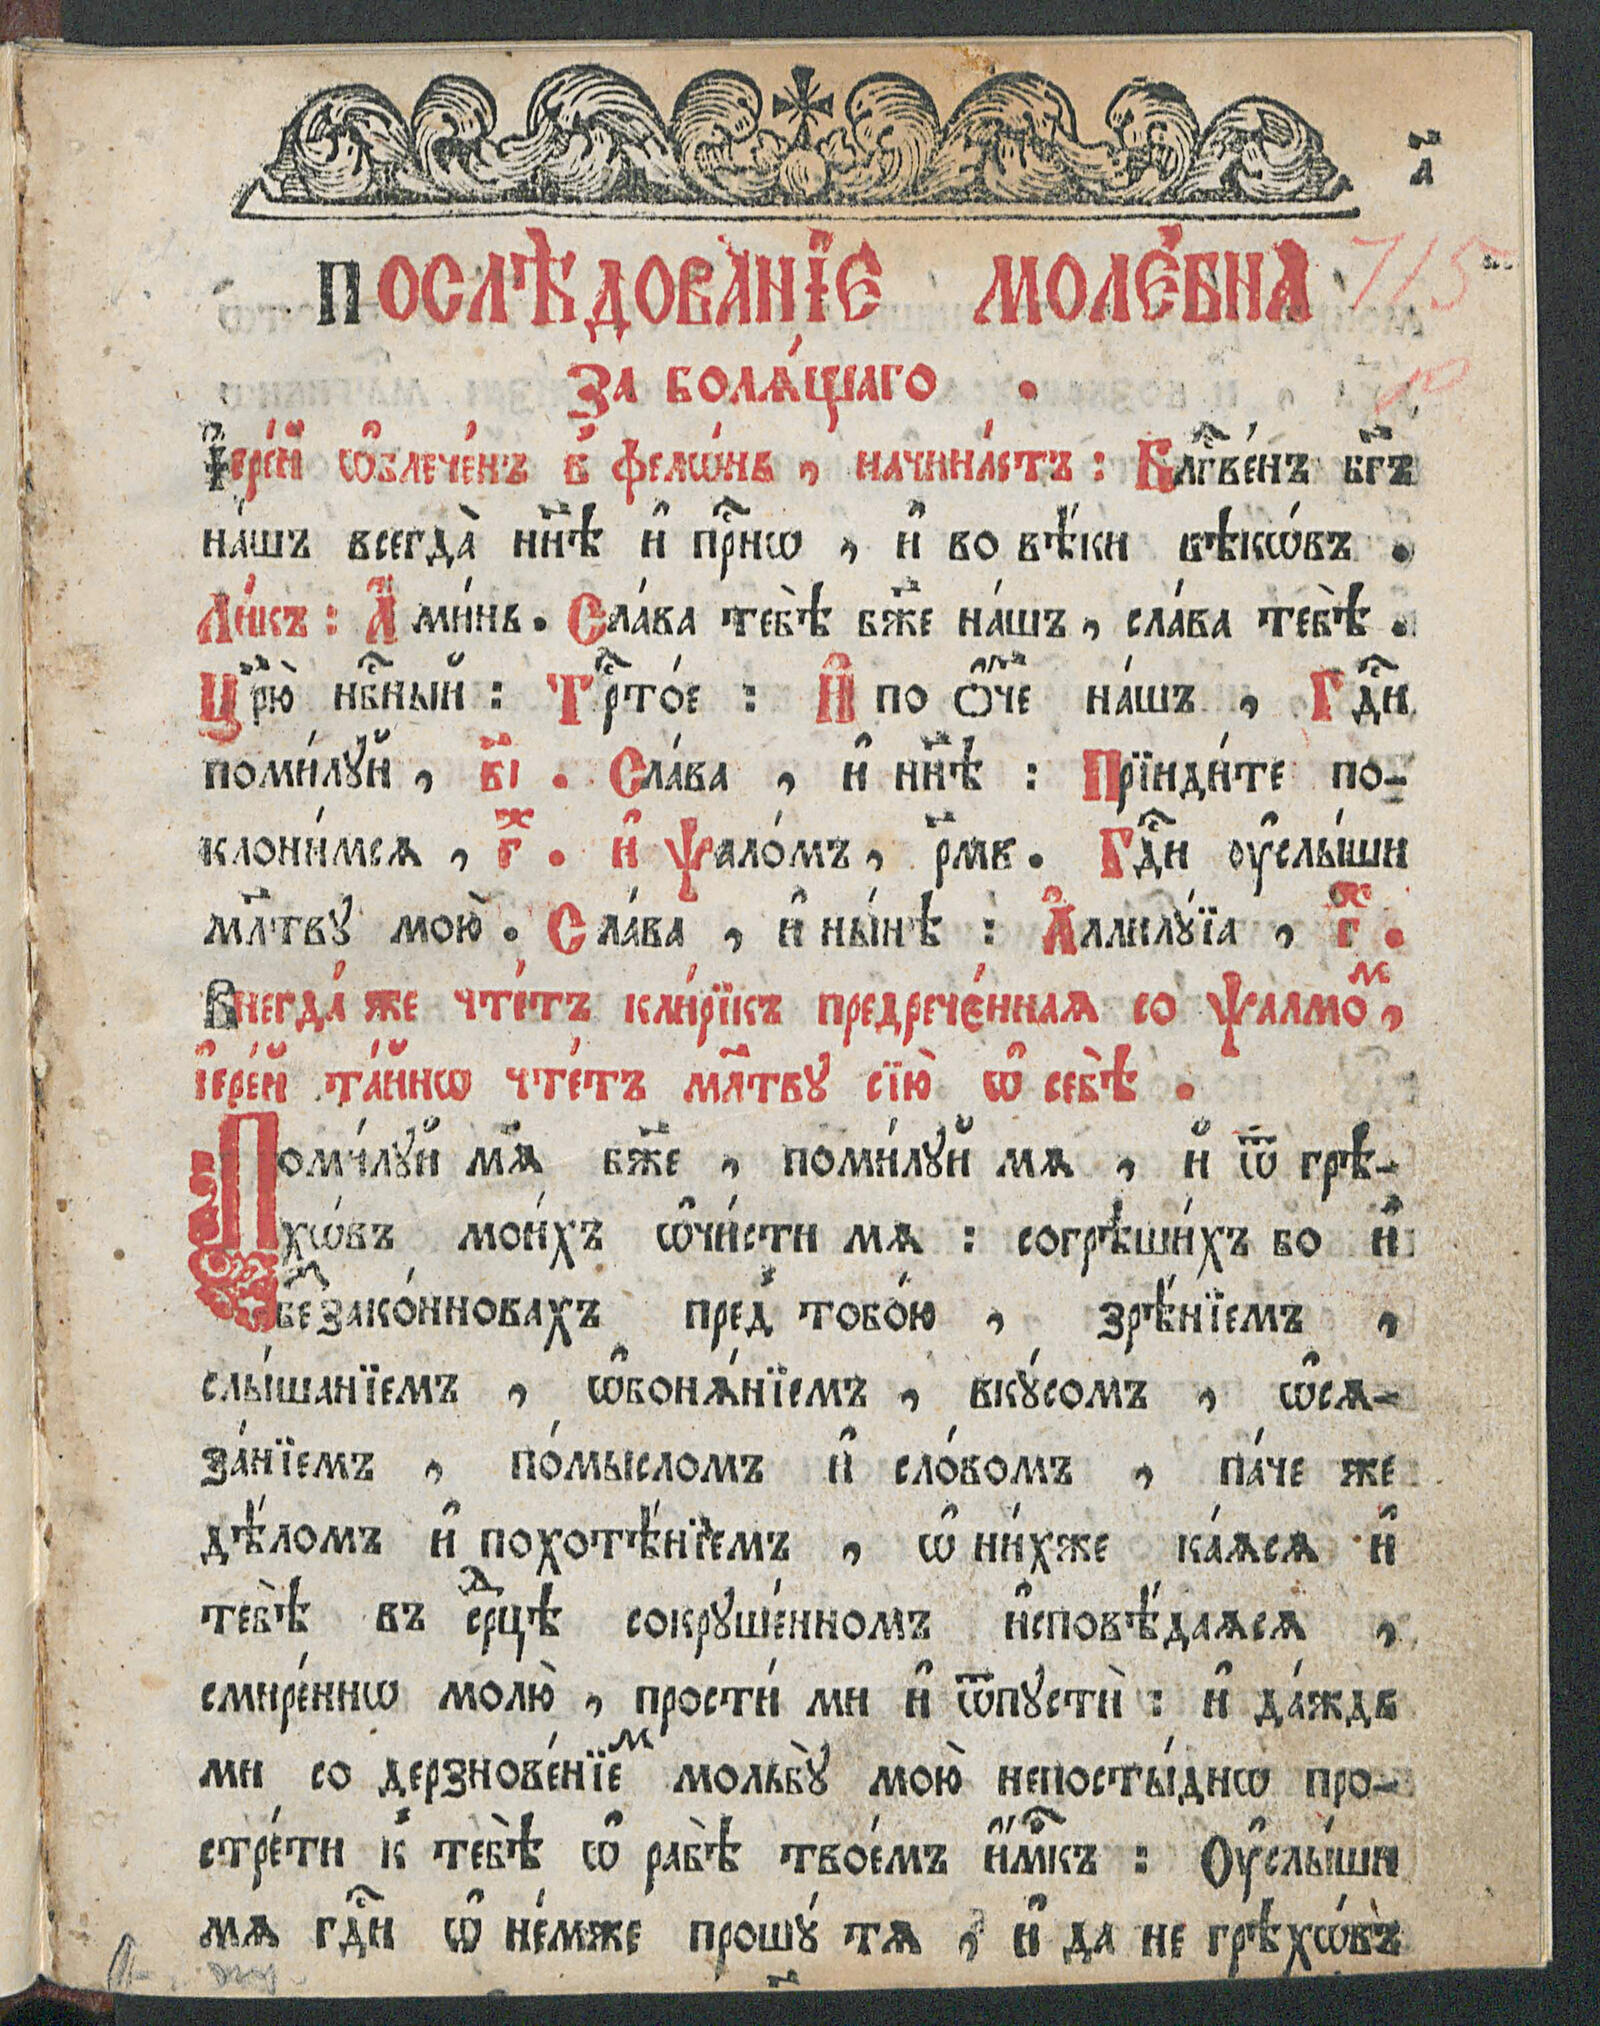 а҃
ПОСЛѢДОВА́НЇЕ МОЛЕ́БНА
За болѧ́щаго .
І҆ере́й ѡ҆блече́нъ в̾ фелѡ́нь , начина́етъ : Бл҃гве́нъ бг҃ъ
на́шъ всегда̀ нн҃ѣ и҆ прⷭ҇нѡ , и҆ во вѣ́ки вѣкѡ́въ .
Ли́къ : А҆ми́нь . Сла́ва тебѣ̀ бж҃е на́шъ , сла́ва тебѣ̀ .
Цр҃ю̀ нбⷭ҇ный : Трⷭ҇то́е : И҆ по Ѻ҆́ч҃е на́шъ , Гдⷭ҇и
поми́лꙋй , в҃і . Сла́ва , и҆ нн҃ѣ : Прїиди́те по-
клони́мсѧ , гⷤ . и҆ ѱало́мъ , рм҃в . Гдⷭ҇и ᲂу҆слы́ши
мл҃твꙋ мою̀ . Сла́ва , и҆ ны́нѣ : А҆ллилꙋ́їа , гⷤ .
Внегда́ же чте́тъ кли́рїкъ предрече́ннаѧ со ѱалмо́ⷨ ,
і҆ере́й та́йнѡ чте́тъ мл҃твꙋ сїю̀ ѡ҆ себѣ̀ .
Поми́лꙋй мѧ̀ бж҃е , поми́лꙋй мѧ , и҆ ѿ грѣ-
хѡ́въ мои́хъ ѡ҆чи́сти мѧ : согрѣши́хъ бо и҆
беззако́нновахъ пред̾ тобо́ю , зрѣ́нїемъ ,
слы́шанїемъ , ѡ҆бонѧ́нїемъ , вкꙋ́сомъ , ѡ҆сѧ-
за́нїемъ , по́мысломъ и҆ сло́вомъ , па́че же
дѣ́ломъ и҆ похотѣ́нїемъ , ѡ҆ ни́хже ка́ѧсѧ и҆
тебѣ̀ въ срⷣцѣ сокрꙋше́нномъ и҆сповѣ́даѧсѧ ,
смире́ннѡ молю̀ , прости́ ми и҆ ѿпꙋстѝ : и҆ да́ждь
ми со дерзнове́нїеⷨ мольбꙋ̀ мою̀ непосты́днѡ про-
стре́ти к̾ тебѣ̀ ѡ҆ рабѣ̀ твое́мъ и҆́мⷬ҇къ : Оу҆слы́ши
мѧ гдⷭ҇и ѡ҆ не́мже прошꙋ́ тѧ , и҆ да не грѣхѡ́въ
715
10